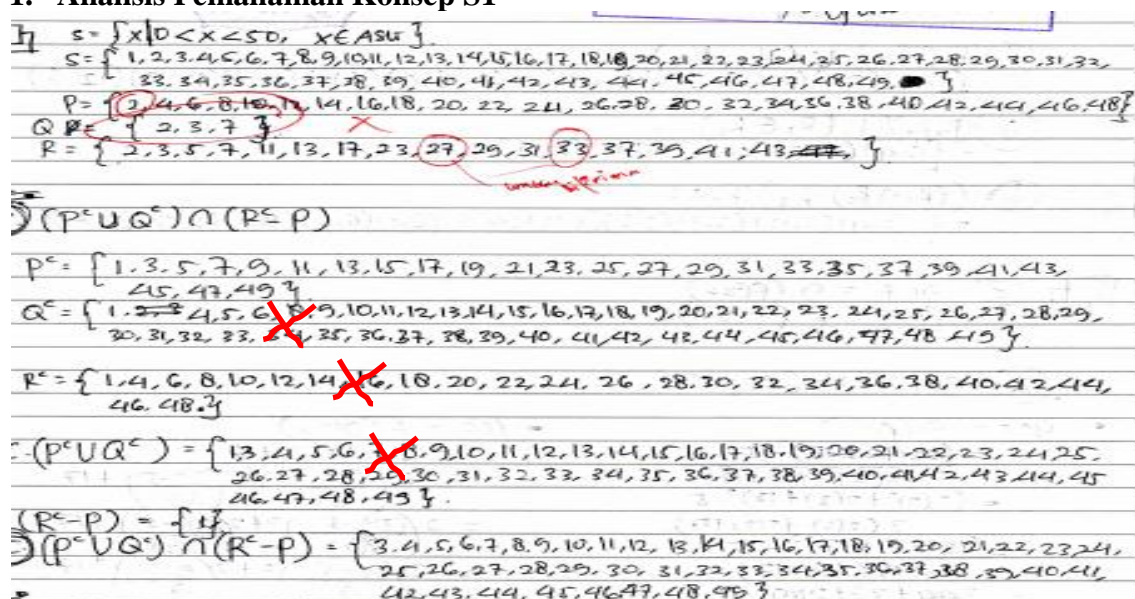 1. Analisis Pemahaman Konsep S1
S = {x|0 < x < 50, x ∈ ASLI}
S = { 1, 2, 3, 4, 5, 6, 7, 8, 9, 10, 11, 12, 13, 14, 15, 16, 17, 18, 19, 20, 21, 22, 23, 24, 25, 26, 27, 28, 29, 30, 31, 32,
33, 34, 35, 36, 37, 38, 39, 40, 41, 42, 43, 44, 45, 46, 47, 48, 49 }
P = { 2, 4, 6, 8, 10, 12, 14, 16, 18, 20, 22, 24, 26, 28, 30, 32, 34, 36, 38, 40, 42, 44, 46, 48}
Q = { 2, 3, 7 }
R = { 2, 3, 5, 7, 11, 13, 17, 23, 27, 29, 31, 33, 37, 39, 41, 43, 47, }
(Pᶜ ∪ Qᶜ) ∩ (Rᶜ - P)
Pᶜ = { 1, 3, 5, 7, 9, 11, 13, 15, 17, 19, 21, 23, 25, 27, 29, 31, 33, 35, 37, 39, 41, 43,
45, 47, 49 }
Qᶜ = { 1, 2, 3, 4, 5, 6, 8, 9, 10, 11, 12, 13, 14, 15, 16, 17, 18, 19, 20, 21, 22, 23, 24, 25, 26, 27, 28, 29,
30, 31, 32, 33, 34, 35, 36, 37, 38, 39, 40, 41, 42, 43, 44, 45, 46, 47, 48 49 }.
Rᶜ = { 1, 4, 6, 8, 10, 12, 14, 16, 18, 20, 22, 24, 26, 28, 30, 32, 34, 36, 38, 40, 42, 44,
46, 48.}
(Pᶜ ∪ Qᶜ) = { 1, 3, 4, 5, 6, 7, 8, 9, 10, 11, 12, 13, 14, 15, 16, 17, 18, 19, 20, 21, 22, 23, 24, 25,
26, 27, 28, 29, 30, 31, 32, 33, 34, 35, 36, 37, 38, 39, 40, 41, 42, 43, 44, 45
46, 47, 48, 49 }.
(Rᶜ - P) = {1}
(Pᶜ ∪ Qᶜ) ∩ (Rᶜ - P) = { 3, 4, 5, 6, 7, 8, 9, 10, 11, 12, 13, 14, 15, 16, 17, 18, 19, 20, 21, 22, 23, 24,
25, 26, 27, 28, 29, 30, 31, 32, 33, 34, 35, 36, 37, 38, 39, 40, 41,
42, 43, 44, 45, 46 47, 48, 49 }